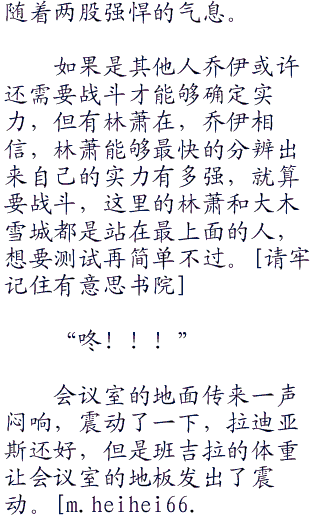 随着两股强悍的气息。
如果是其他人乔伊或许
还需要战斗才能够确定实
力，但有林萧在，乔伊相
信，林萧能够最快的分辨出
来自己的实力有多强，就算
要战斗，这里的林萧和大木
雪城都是站在最上面的人，
想要测试再简单不过。[请牢
记住有意思书院]
“咚！！！”
会议室的地面传来一声
闷响，震动了一下，拉迪亚
斯还好，但是班吉拉的体重
让会议室的地板发出了震
动。[m.heihei66.